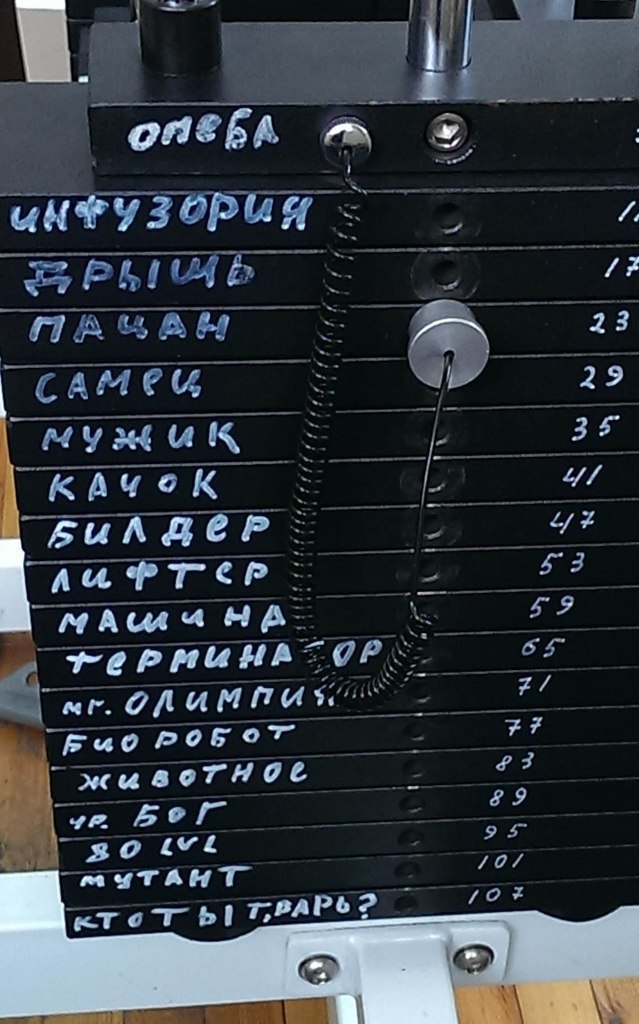 ОМЕБА
ИНФУЗОРИЯ
ДРЫЩЬ 17
ПАЦАН 23
САМЕЦ 29
МУЖИК 35
КАЧОК 41
БИЛДЕР 47
ЛИФТЕР 53
МАШИНА 59
ТЕРМИНАТОР 65
мг. ОЛИМПИЯ 71
БИОРОБОТ 77
ЖИВОТНОЕ 83
ур. БОГ 89
80 LVL 95
МУТАНТ 101
КТО ТЫ Т,ВАРЬ? 107